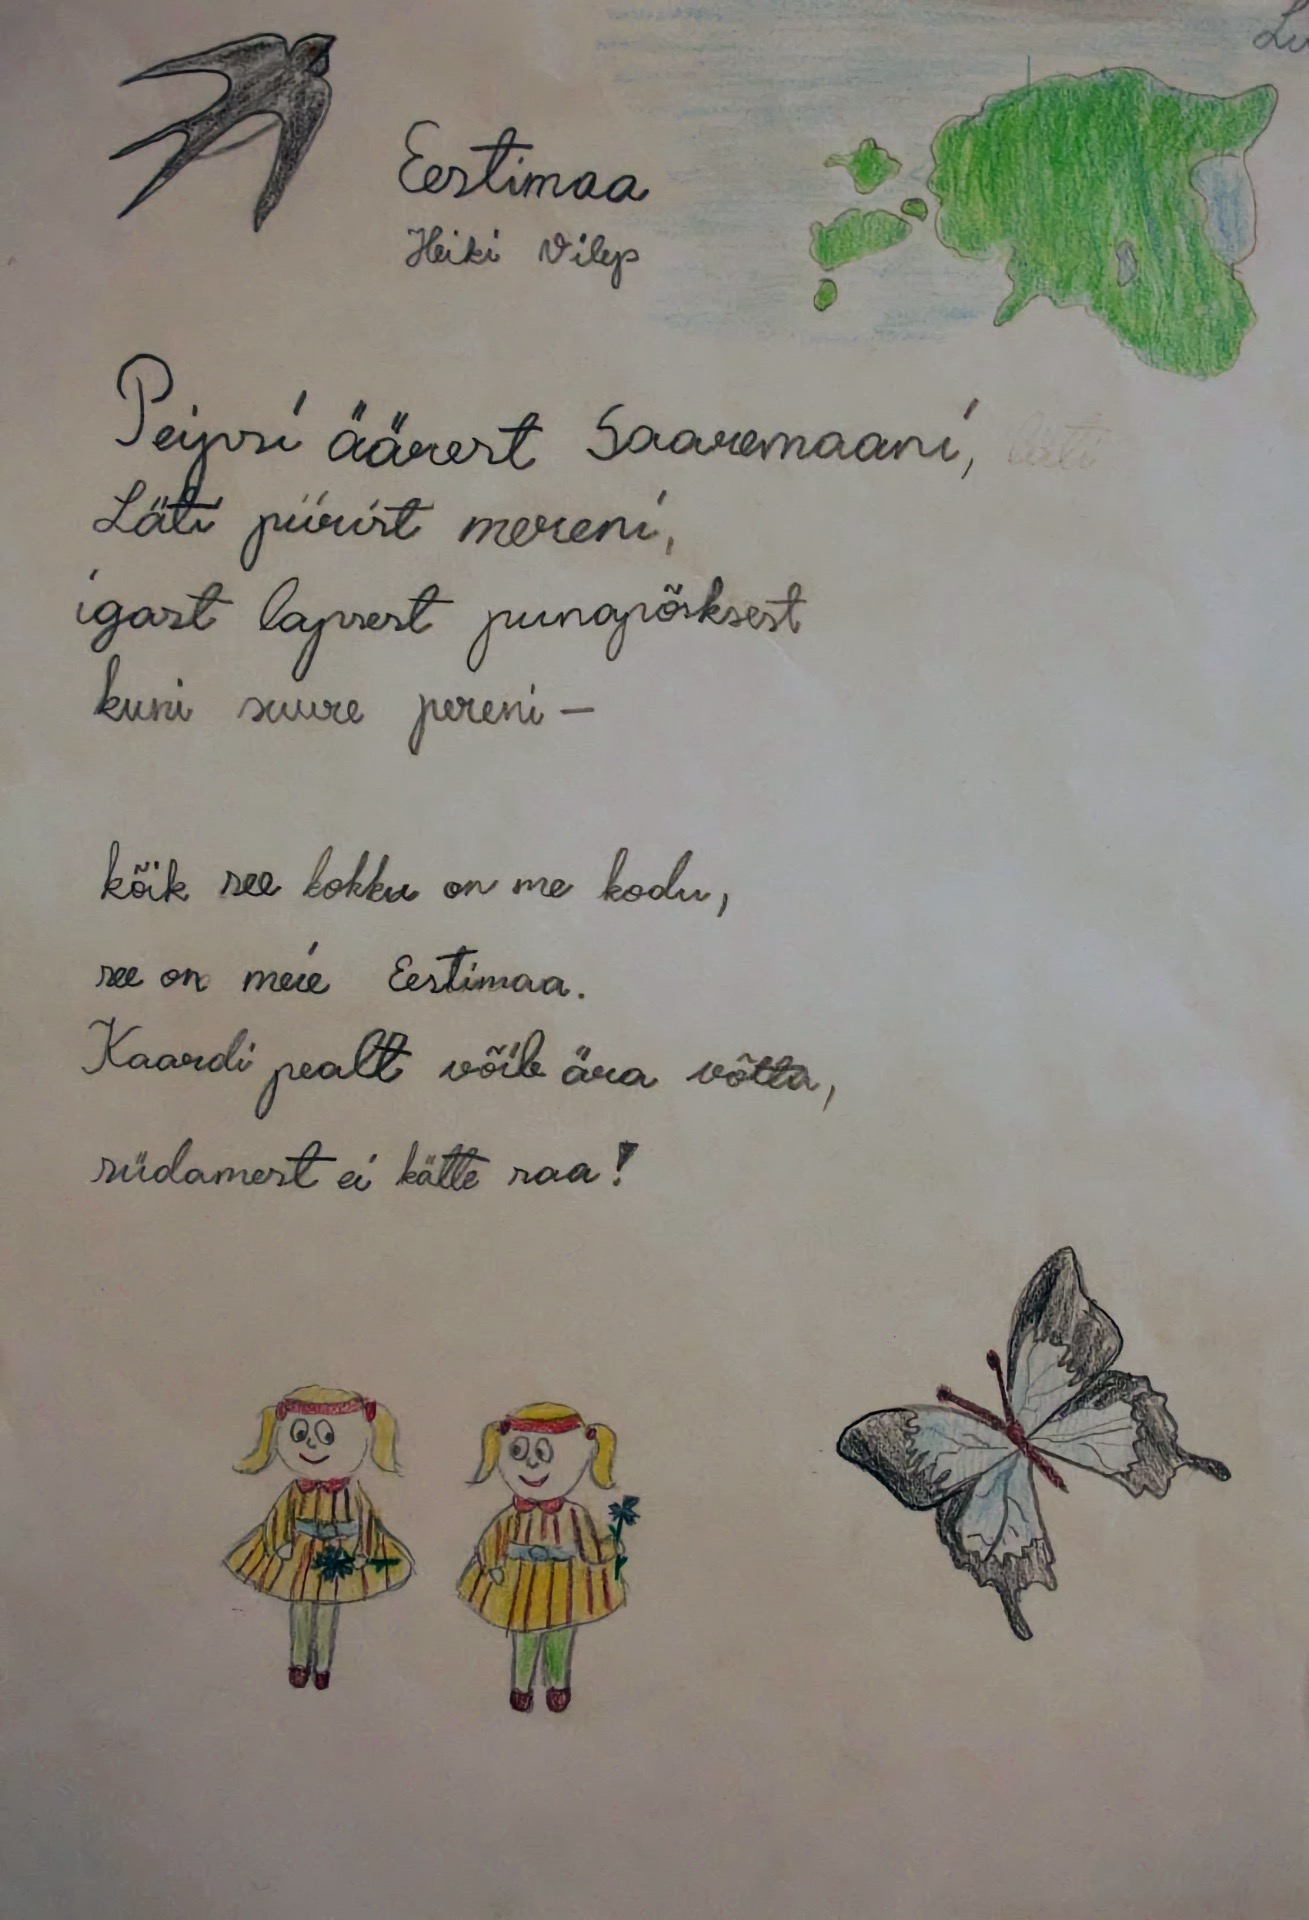 Eestimaa
Heiki Vilep
Peipsi äärest Saaremaani,
Läti piirist mereni,
igast lapsest punapõsksest
kuni suure pereni –
kõik see kokku on me kodu,
see on meie Eestimaa.
Kaardi pealt võib ära võtta,
südamest ei kätte saa!